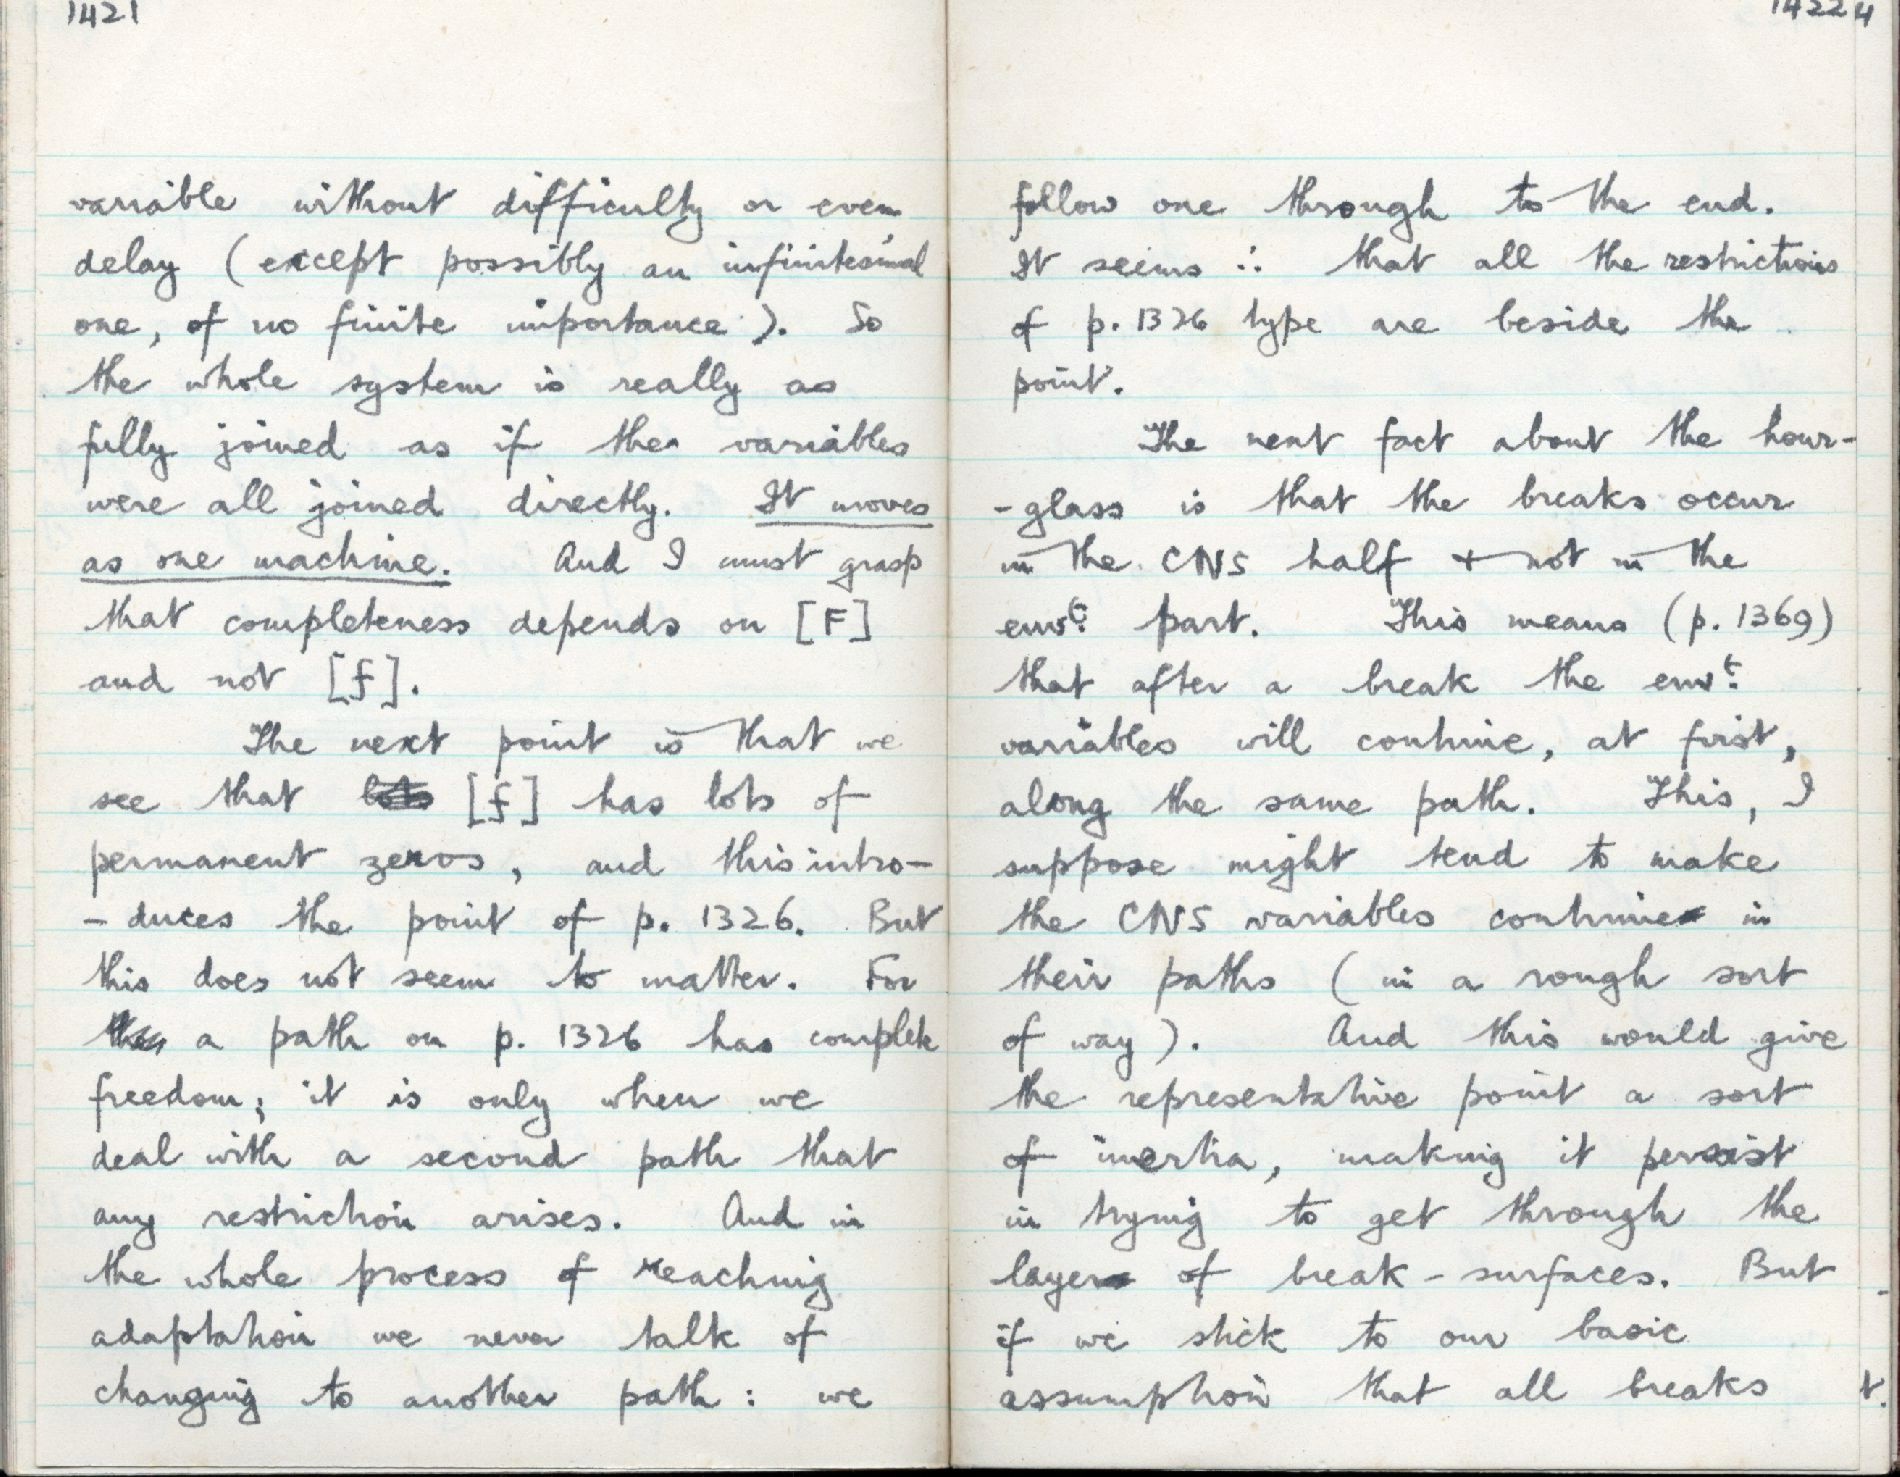 1421
variable without difficulty or even
delay (except possibly an infinitesimal
one, of no finite importance). So
the whole system is really as
fully joined as if the variables
were all joined directly. It moves
as one machine. And I must grasp
that completeness depends on [F]
and not [f].
The next point is that we
see that lots [f] has lots of
permanent zeros, and this intro-
-duces the point of p. 1326. But
this does not seem to matter. For
a path on p. 1326 has complete
freedom; it is only when we
deal with a second path that
any restriction arises. And in
the whole process of reaching
adaptation we never talk of
changing to another path: we
1422
4
follow one through to the end.
It seems ∴ that all the restrictions
of p. 1326 type are beside the
point.
The next fact about the hour-
-glass is that the breaks occur
in the CNS half + not in the
envt. part. This means (p. 1369)
that after a break the envt.
variables will continue, at first,
along the same path. This, I
suppose might tend to make
the CNS variables continue in
their paths (in a rough sort
of way). And this would give
the representative point a sort
of inertia, making it persist
in trying to get through the
layer of break-surfaces. But
if we stick to our basic
assumption that all breaks
t.